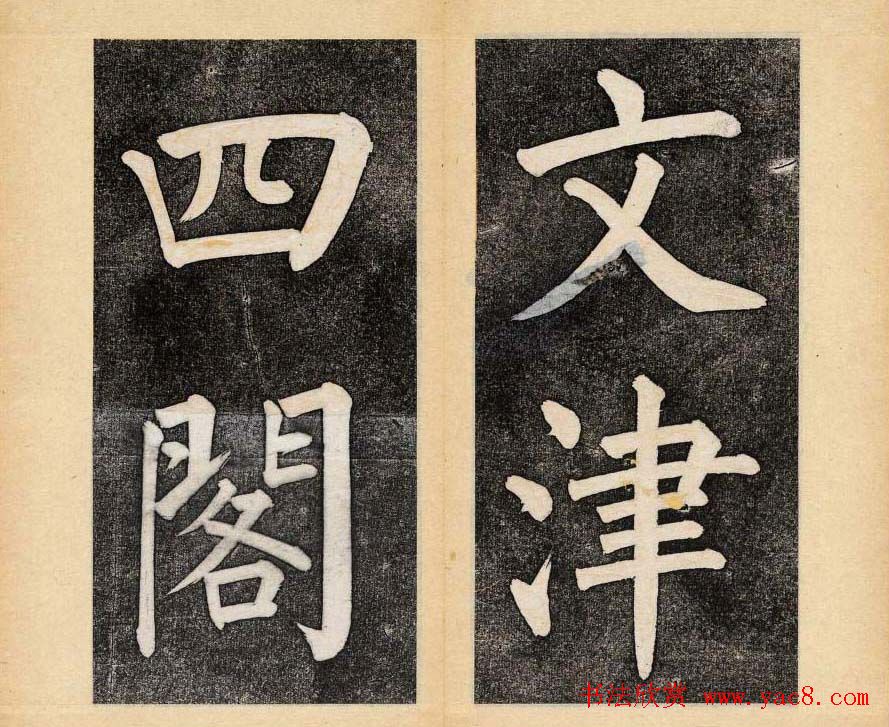 文津
四閣
书法欣赏 www.yac8.com